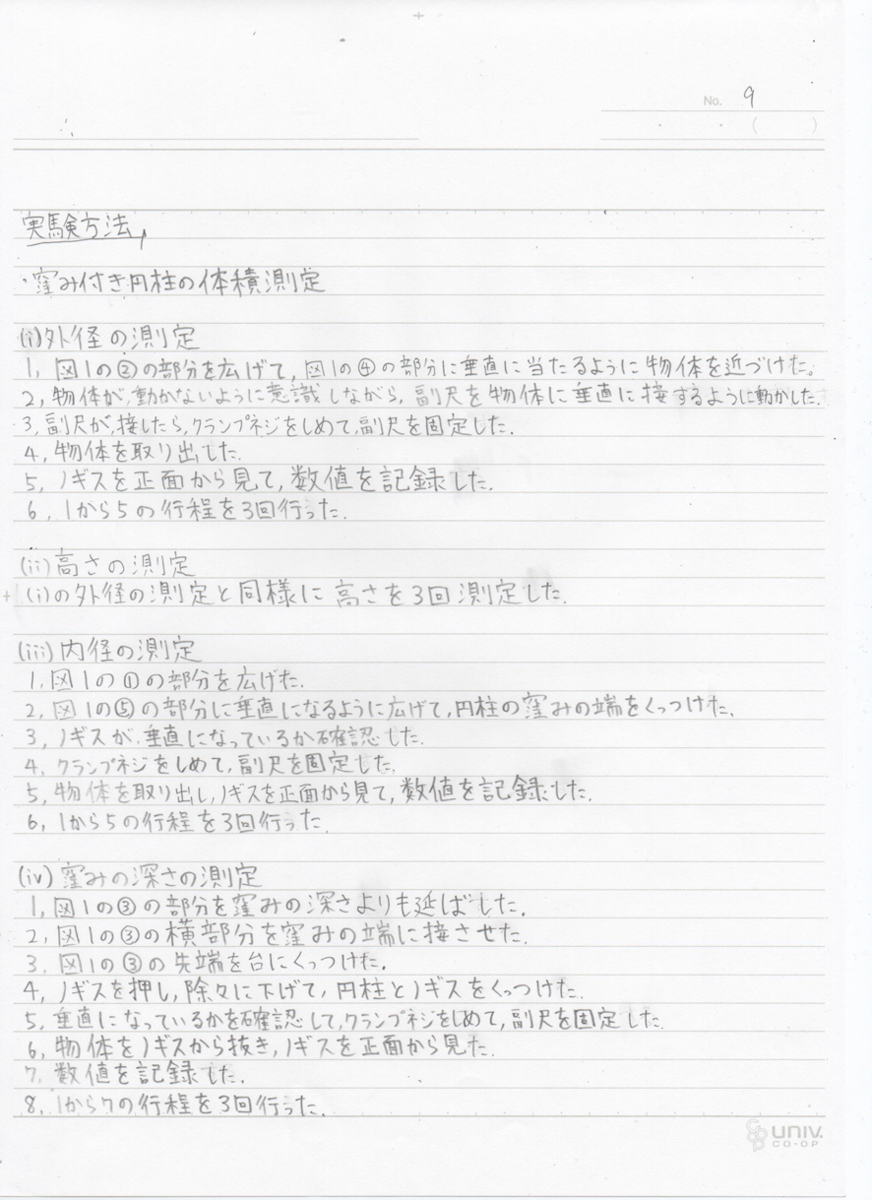 No. 9
( )
実験方法,
・窪み付き円柱の体積測定
(i)外径の測定
1, 図1の②の部分を広げて, 図1の④の部分に垂直に当たるように物体を近づけた。
2, 物体が,動かないように意識しながら, 副尺を物体に垂直に接するように動かした.
3, 副尺が,接したら,クランプネジをしめて,副尺を固定した.
4, 物体を取り出した.
5, ノギスを正面から見て, 数値を記録した.
6, 1から5の行程を3回行った.
(ii)高さの測定
(i)の外径の測定と同様に高さを3回測定した.
(iii)内径の測定
1, 図1の①の部分を広げた.
2, 図1の⑤の部分に垂直になるように広げて,円柱の窪みの端をくっつけた.
3, ノギスが,垂直になっているか確認した.
4, クランプネジをしめて, 副尺を固定した.
5, 物体を取り出し,ノギスを正面から見て, 数値を記録した.
6, 1から5の行程を3回行った.
(iv) 窪みの深さの測定
1, 図1の③の部分を窪みの深さよりも延ばした.
2, 図1の③の横部分を窪みの端に接させた.
3, 図1の③の先端を台にくっつけた.
4, ノギスを押し, 除々に下げて, 円柱とノギスをくっつけた.
5, 垂直になっているかを確認して,クランプネジをしめて, 副尺を固定した.
6, 物体をノギスから抜き, ノギスを正面から見た.
7, 数値を記録した.
8, 1から7の行程を3回行った.
UNIV.
CO-OP